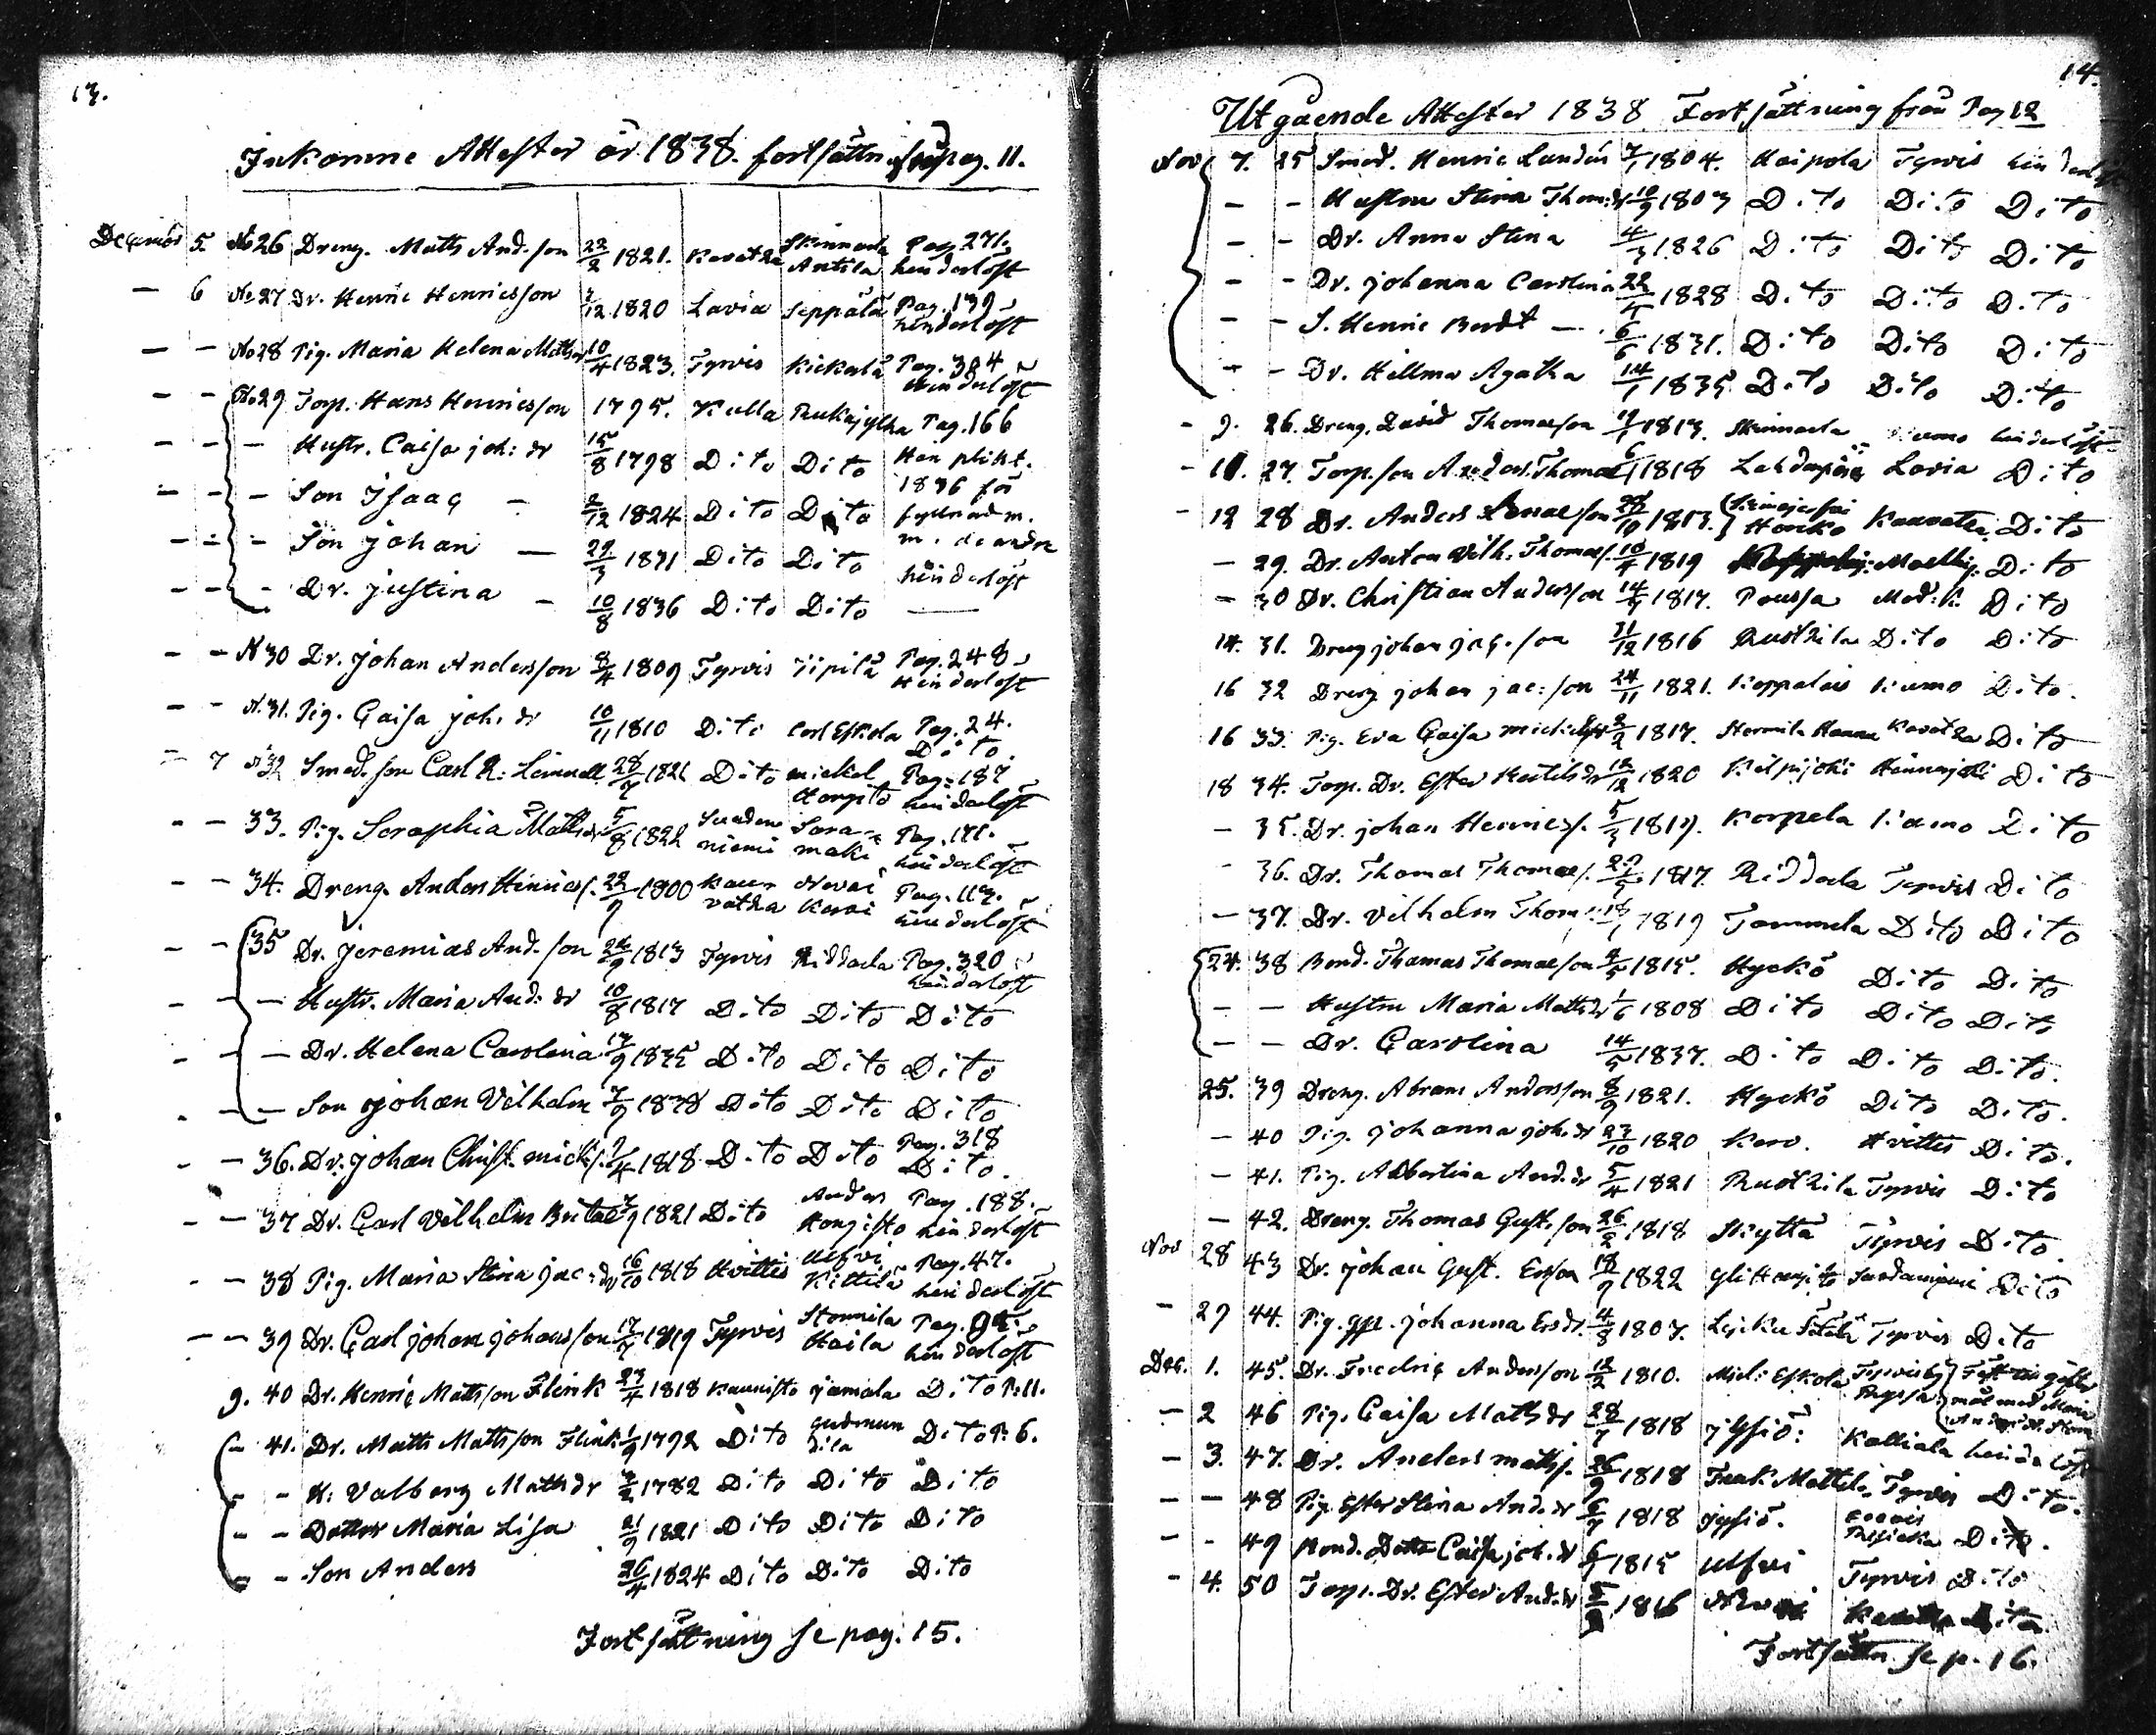 13.
Inkomne Attester år 1838. fortsättn. från pag. 11.
December 5. No 26 Dreng. Matts And.son 22/2 1821. Kavatka Skinnarla Antila Pag. 271. hinderlöst
— 6 No 27 Dr. Henric Henricsson 2/12 1820 Lavia Seppälä Pag. 139 hinderlöst
— — No 28 Pig. Maria Helena Mattsdr 10/4 1823. Tyrvis Kickerlä Pag. 384 hinderlöst
— — No 29 Torp. Hans Henricsson 1795. Kulla Pag. 166
— — — Hustr. Caisa joh: dr 15/8 1798 Dito Dito
— — — Son Isaac — 2/12 1824 Dito Dito 1836 för
— — — Son johan — 29/3 1831 Dito Dito hinderlöst
— — — Dr. justina — 10/8 1836 Dito Dito —
— — N 30 Dr. johan Andersson 8/4 1809 Tyrvis Pag. 248 Hinderlöst
— — N. 31. Pig. Caisa joh. dr 10/11 1810 Dito Carl Eskola Pag. 24. Dito
— 7 N 32 Smed. son Carl 28/7 1821 Dito mickel Hongisto Pag. 187 hinderlöst
— — 33. Pig. Seraphia Mattsdr 5/8 1822 Suodenniemi Sara-maki hinderlöst
— — 34. Dreng. Anders Henricss. 22/9 1800 Kauvatka Pag. 117. hinderlöst
— — 35 Dr. jeremias And. son 24/9 1813 Tyrvis Riddala Pag. 320 hinderlöst
— — — Hustr. Maria And: dr 10/8 1817 Dito Dito Dito
— — — Dr. Helena Carolina 17/9 1835 Dito Dito Dito
— — — Son johan Vilhelm 7/9 1838 Dito Dito Dito
— — 36. Dr. johan Christ. micks. 1818 Dito Dito Pag. 318 Dito.
— — 37 Dr. Carl Vilhelm 1821 Dito Anders Hongisto Pag. 188. hinderlöst
— — 38 Pig. Maria Stina jac: dr 16/10 1818 Hvittis Ulfvi Kittilä Pag. 47. hinderlöst
— — 39 Dr. Carl johan johansson 17/7 1819 Tyrvis Stormila Haila Pag. hinderlöst
9. 40 Dr. Henric Mattsson Flink 27/4 1818 Kaunisto jamala Dito P. 11.
— 41. Dr. Matts Mattsson Flink 1/9 1792 Dito Dito P. 6.
— — H: Valborg Mattsdr 2/2 1782 Dito Dito Dito
— — Dotter Maria Lisa 21/9 1821 Dito Dito Dito
— — Son Anders 26/4 1824 Dito Dito Dito
Fortsättning se pag. 15.
14.
Utgående Attester 1838 Fortsättning från Pag 12
Nov 7. 25 Smed. Henric Landén 7/1 1804. Kaipola Tyrvis
— — Hustru Stina Thom: dr 10/9 1803 Dito Dito Dito
— — Dr. Anna Stina 4/3 1826 Dito Dito Dito
— — Dr. johanna Carolina 22/5 1828 Dito Dito Dito
— — S. Henric Berndt — 6/6 1831. Dito Dito Dito
— — Dr. Hillma Agatha 14/1 1835 Dito Dito Dito
— 9. 26. Dreng. David Thomasson 1813. Skinnarla Kumo hinderlöst
— 10. 27. Torp. son Anders Thomas 1818 Lavia Dito
— 12 28 Dr. Anders 1813. Honko Kauvatka Dito
— 29. Dr. Anton Vilh. Thomss. 10/4 1819 Dito
— 30 Dr. Christian Andersson 14/4 1817. Poussa Dito
14. 31. Dreng johan jac. son 31/12 1816 Rustkila Dito Dito
16 32 Dreng johan jac: son 24/11 1821. Koppalais Kumo Dito.
16 33. Pig. Eva Caisa 2/2 1817. Hermila Kavatka Dito
18 34. Torp. Dr. Ester 12/12 1820 Kilpijoki Dito
— 35. Dr. johan Henricss. 5/3 1819. Korpela Kumo Dito
— 36. Dr. Thomas Thomass. 1817. Riddala Tyrvis Dito
— 37. Dr. Vilhelm Thom. 1819 Tommela Dito Dito
24. 38 Bond. Thomas Thomasson 1815. Hyckö Dito Dito
— — Hustru Maria Mattsdr 1/6 1808 Dito Dito Dito
— — Dr. Carolina 14/5 1837. Dito Dito Dito.
25. 39 Dreng. Abram Andersson 8/9 1821. Hyckö Dito Dito.
— 40 Pig. johanna joh. dr 23/10 1820 Karo. Hvittis Dito.
— 41. Pig. Albertina And. dr 5/4 1821 Rustkila Tyrvis Dito
— 42. Dreng. Thomas Gust. son 26/2 1818 Skyttä Tyrvis Dito.
Nov 28 43 Dr. johan Gust. 18/9 1822 Dito
— 29 44. Pig. johanna 4/8 1807. Tyrvis Dito
Dec. 1. 45. Dr. Fredric Andersson 12/2 1810. Mich: Eskola
— 2 46 Pig. Caisa Matts dr 28/7 1818 Kalliala
— 3. 47. Dr. Anders matts. 26/9 1818 Tyrvis Dito.
— — 48 Pig. Ester Stina And. dr 6/7 1818 Dito.
— — 49 Bond. Dottr Caisa joh. dr 1815 Ulfvi Tyrvis Dito
— 4. 50 Torp. Dr. Ester And. dr 1816 Dito
Fortsättn. se p. 16.